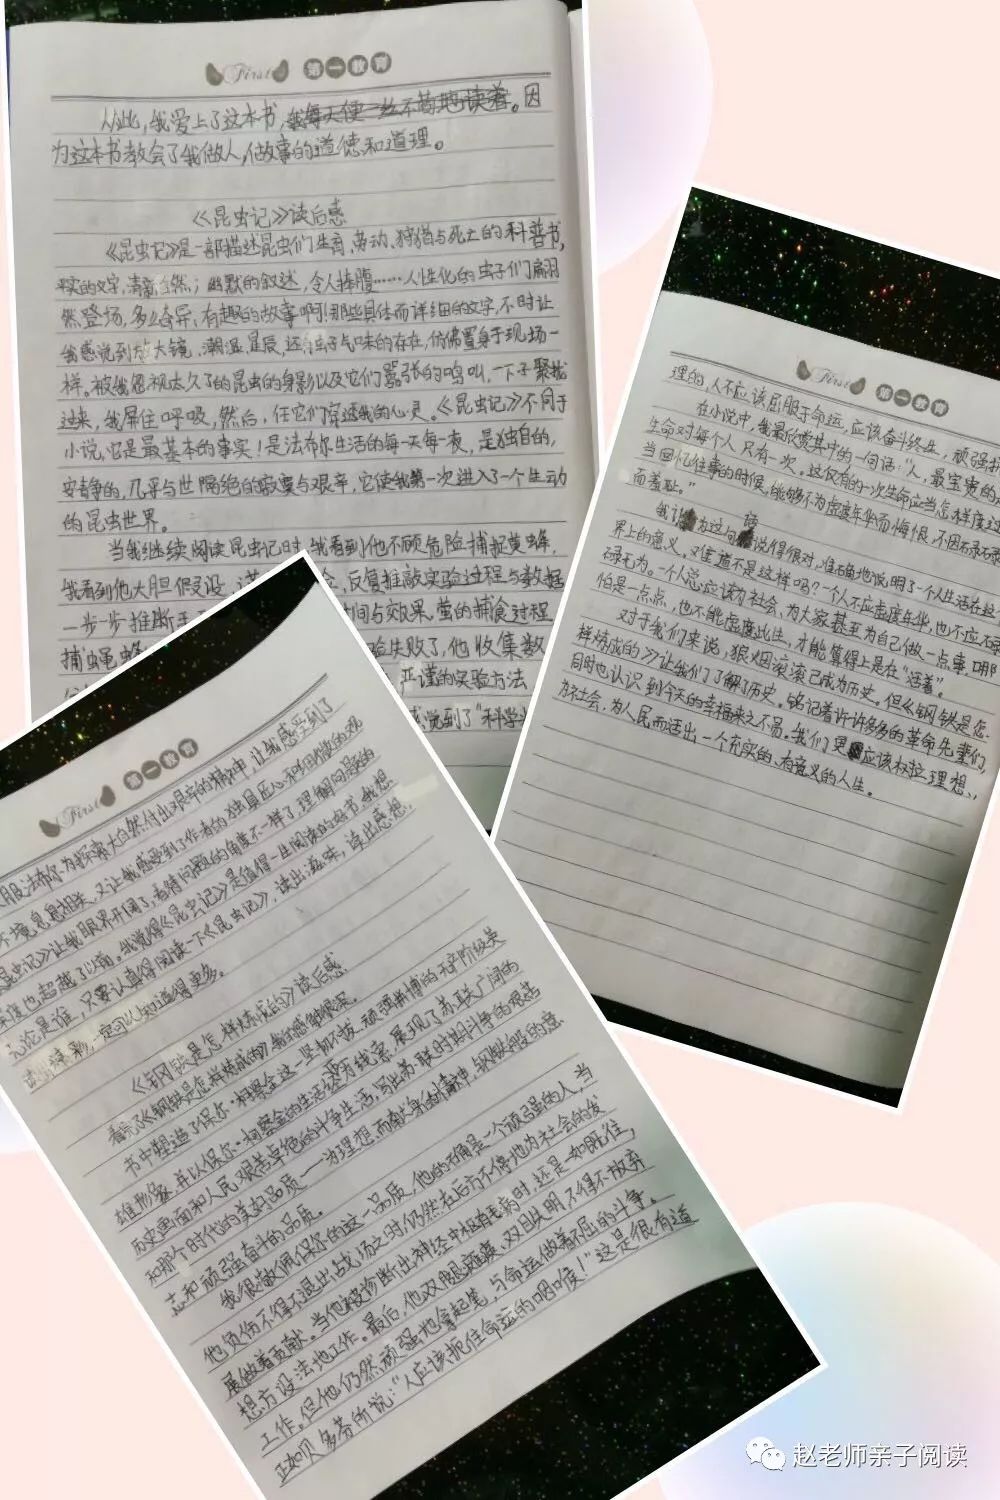 First 第一教育
从此,我爱上了这本书,我每天便一丝不苟地读着。因
为这本书教会了我做人,做事的道德和道理。
《昆虫记》读后感
《昆虫记》是一部描述昆虫们生育,劳动,狩猎与死亡的科普书,
平实的文字,清新自然;幽默的叙述,令人捧腹……人性化的虫子们翩翩
然登场,多么奇异、有趣的故事啊!那些具体而详细的文字,不时让
我感觉到放大镜、潮湿、星辰,还有虫子气味的存在,仿佛置身于现场一
样。被我忽视太久了的昆虫的身影以及它们嚣张的鸣叫,一下子聚拢
过来,我屏住呼吸,然后,任它们穿透我的心灵。《昆虫记》不同于
小说,它是最基本的事实!是法布尔生活的每一天每一夜,是独自的,
安静的,几乎与世隔绝的寂寞与艰辛,它使我第一次进入了一个生动
的昆虫世界。
当我继续阅读昆虫记时,我看到他不顾危险捕捉黄蜂,
我看到他大胆假设、谨 反复推敲实验过程与数据
一步一步推断 时间与交果,萤的捕食过程
捕蝇蜂 验失败了,他收集数
严谨的实验方法
感觉到了“科学
First 第一教育
服法布尔为探索大自然付出艰辛的精神,让我感受到了
环境息息相关,又让我感受到了作者的独具匠心和细微的观
昆虫记》让我眼界开阔了,看待问题的角度不一样了,理解问题的
深度也超越了以前。我觉得《昆虫记》是值得一生阅读的好书,我想
无论是谁,只要认真得阅读一下《昆虫记》,读出滋味,读出感想,
一定可以知道得更多。
《钢铁是怎样炼成的》读后感
看完了《钢铁是怎样炼成的》我的感触很深。
书中塑造了保尔·柯察金这一坚韧不拔,顽强拼搏的无产阶级英
雄形象,并以保尔·柯察金的生活经历为线索,展现了苏联广阔的
历史画面和人民艰苦卓绝的斗争生活,写出苏联时期斗争的艰苦
和那个时代的美好品质——为理想而献身的精神,钢铁般的意
志和顽强奋斗的品质。
我很敬佩保尔的这一品质,他的确是一个顽强的人,当
他负伤不得不退出战场之时,仍然在后方不停地为社会的发
展做着贡献。当他被诊断出神经中枢有毛病时,还是一如既往,
想方设法地工作。最后,他双腿瘫痪、双目失明,不得不放弃
工作,但他仍然顽强地拿起笔,与命运做着不屈的斗争。
正如贝多芬所说:“人应该扼住命运的咽喉!”这是很有道
First 第一教育
理的,人不应该屈服于命运,应该奋斗终生,顽强拼
在小说中,我最欣赏其中的一句话:“人,最宝贵的
生命对每个人只有一次。这仅有的一次生命应当怎样度过
当回忆往事的时候,能够不为虚度年华而悔恨,不因碌碌
而羞耻。”
我认为这句话说得很对,准确地说明了一个人生活在这
界上的意义。难道不是这样吗?一个人不应虚度年华,也不应碌
碌无为。一个人总应该为社会、为大家甚至为自己做一点事,哪
怕是一点点,也不能虚度此生,才能算得上是在“活着”。
对于我们来说,狼烟滚滚已成为历史。但《钢铁是怎
样炼成的》让我们了解了历史。铭记着许许多多的革命先辈们,
同时也认识到今天的幸福来之不易。我们更应该树立理想,
为社会,为人民而活出一个充实的、有意义的人生。
赵老师亲子阅读